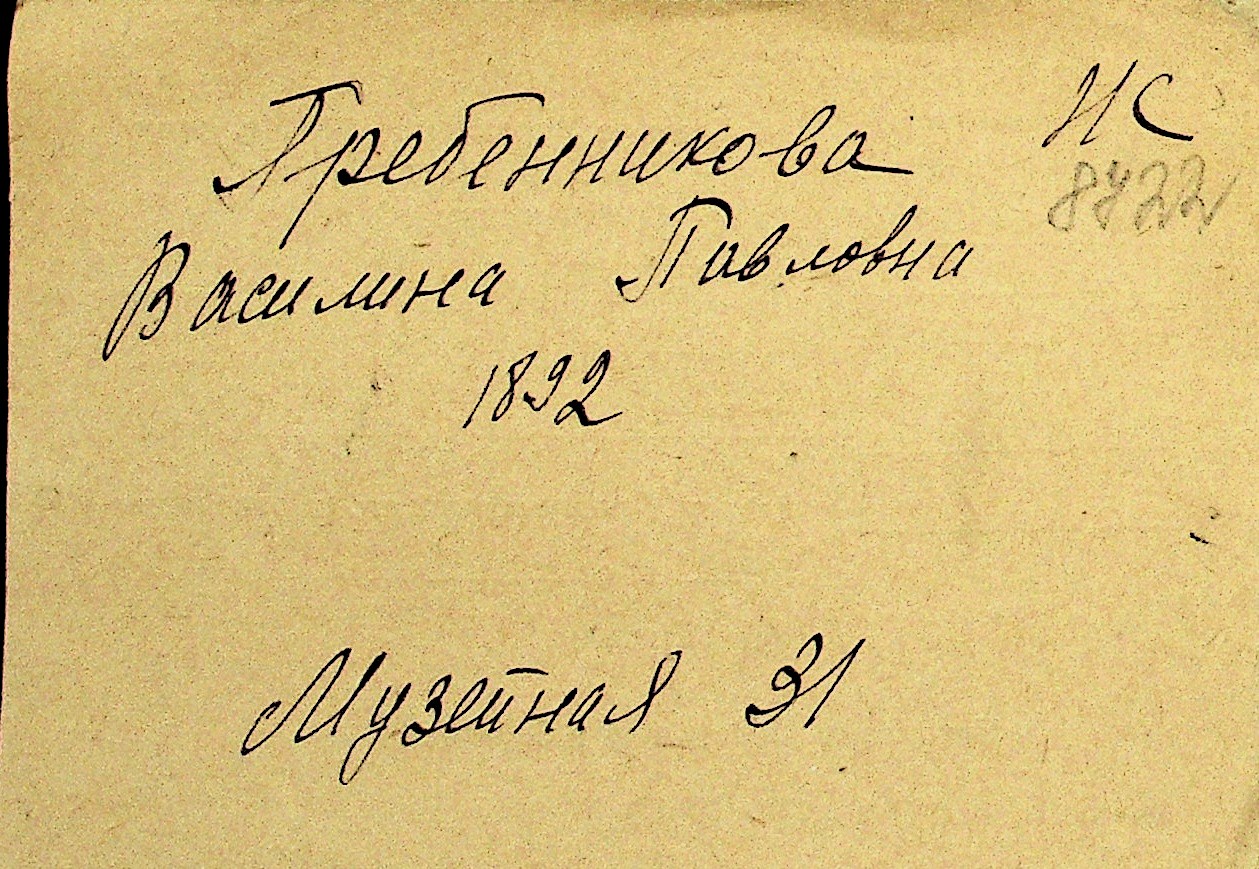 Гребенникова НС
Василина Павловна
1892
Музейная 31